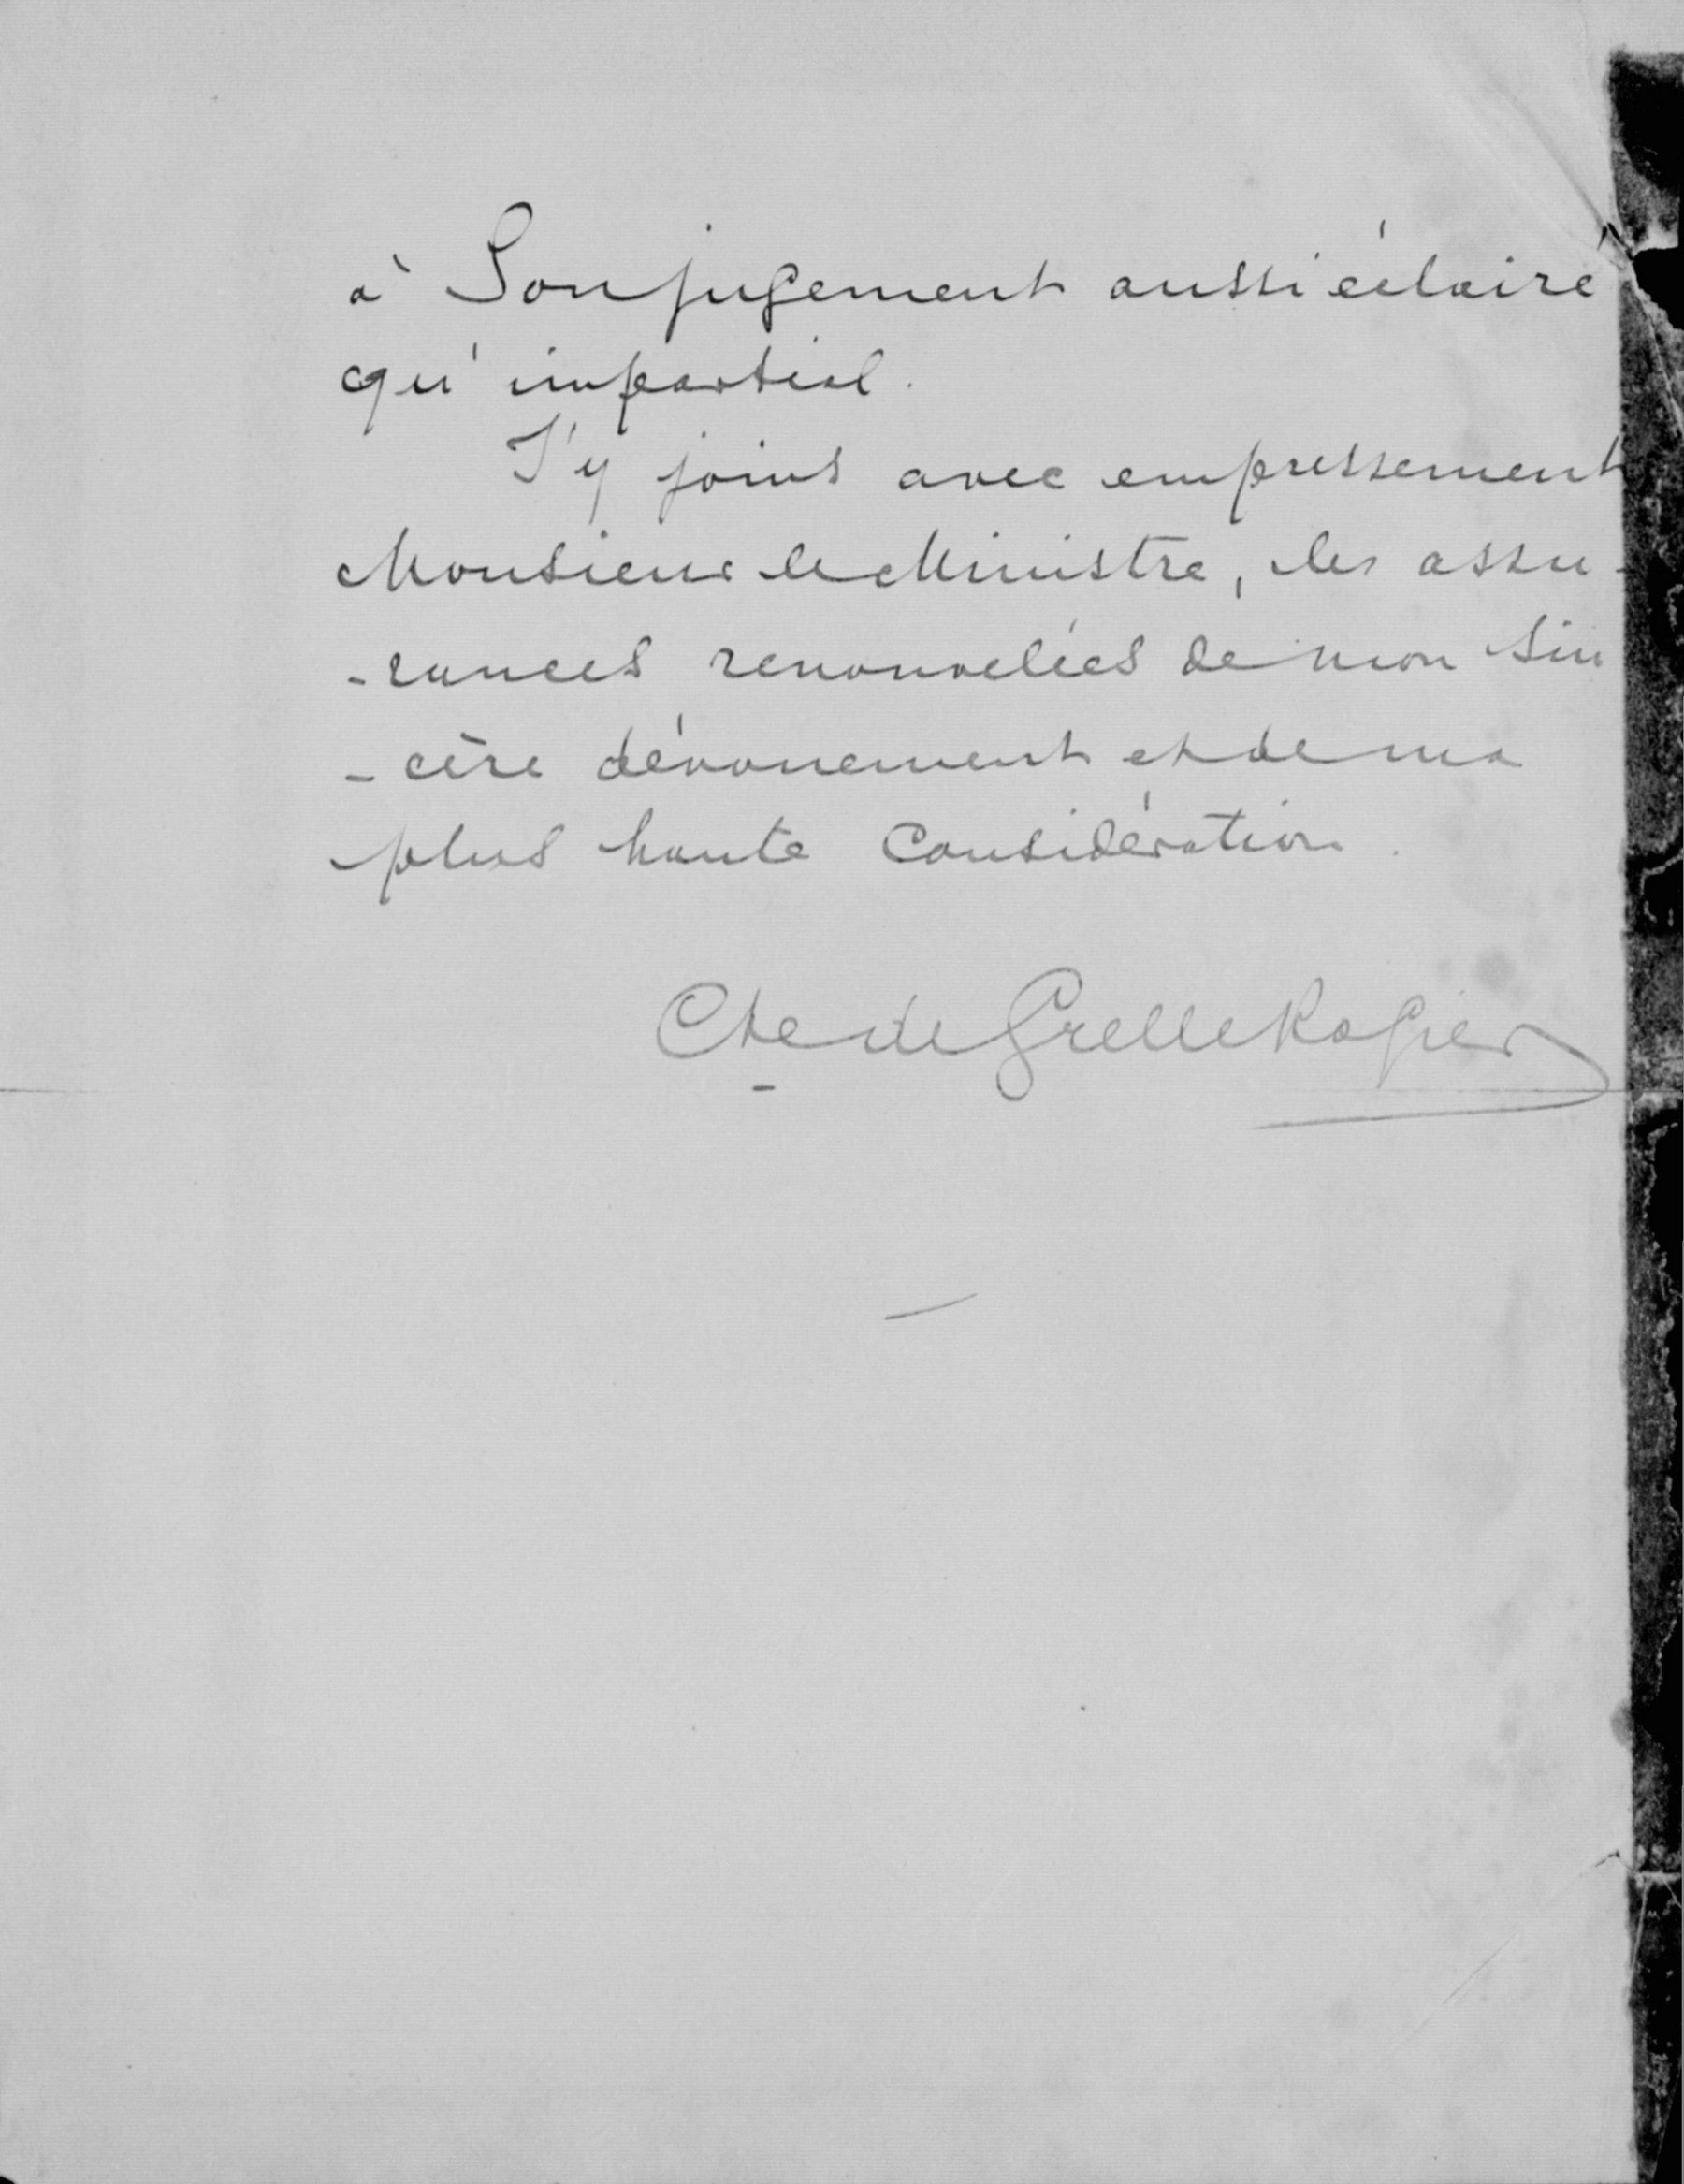 à Son jugement aussi éclairé
qu'impartial.
J'y joins avec empressement
Monsieur le Ministre, les assu-
-rances renouvelées de mon sin
-cère dévouement et de ma
plus haute Considération.
Cte de Grelle Rogier